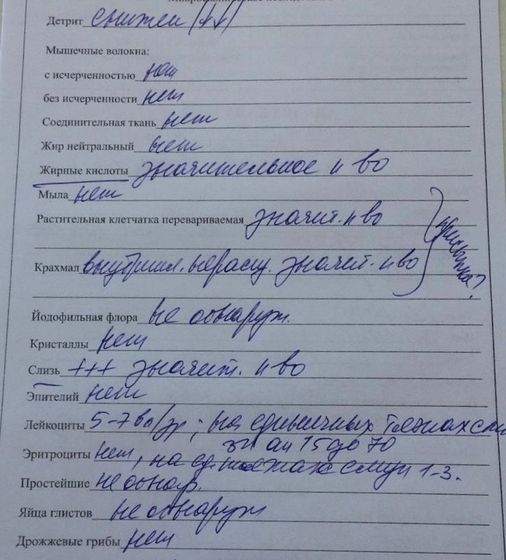 Детрит снижен (++)
Мышечные волокна:
с исчерченностью нет
без исчерченности нет
Соединительная ткань нет
Жир нейтральный нет
Жирные кислоты значительное к во
Мыла нет
Растительная клетчатка перевариваемая значит. к во
Крахмал внутрикл. значит. к во
Йодофильная флора не обнаруж.
Кристаллы нет
Слизь +++ значит. к во
Эпителий нет
Лейкоциты 5-7 в п/зр; на единичных тяжах слизи
до 70
Эритроциты нет, на ед. тяжах слизи 1-3.
Простейшие не обнар.
Яйца глистов не обнаруж
Дрожжевые грибы нет